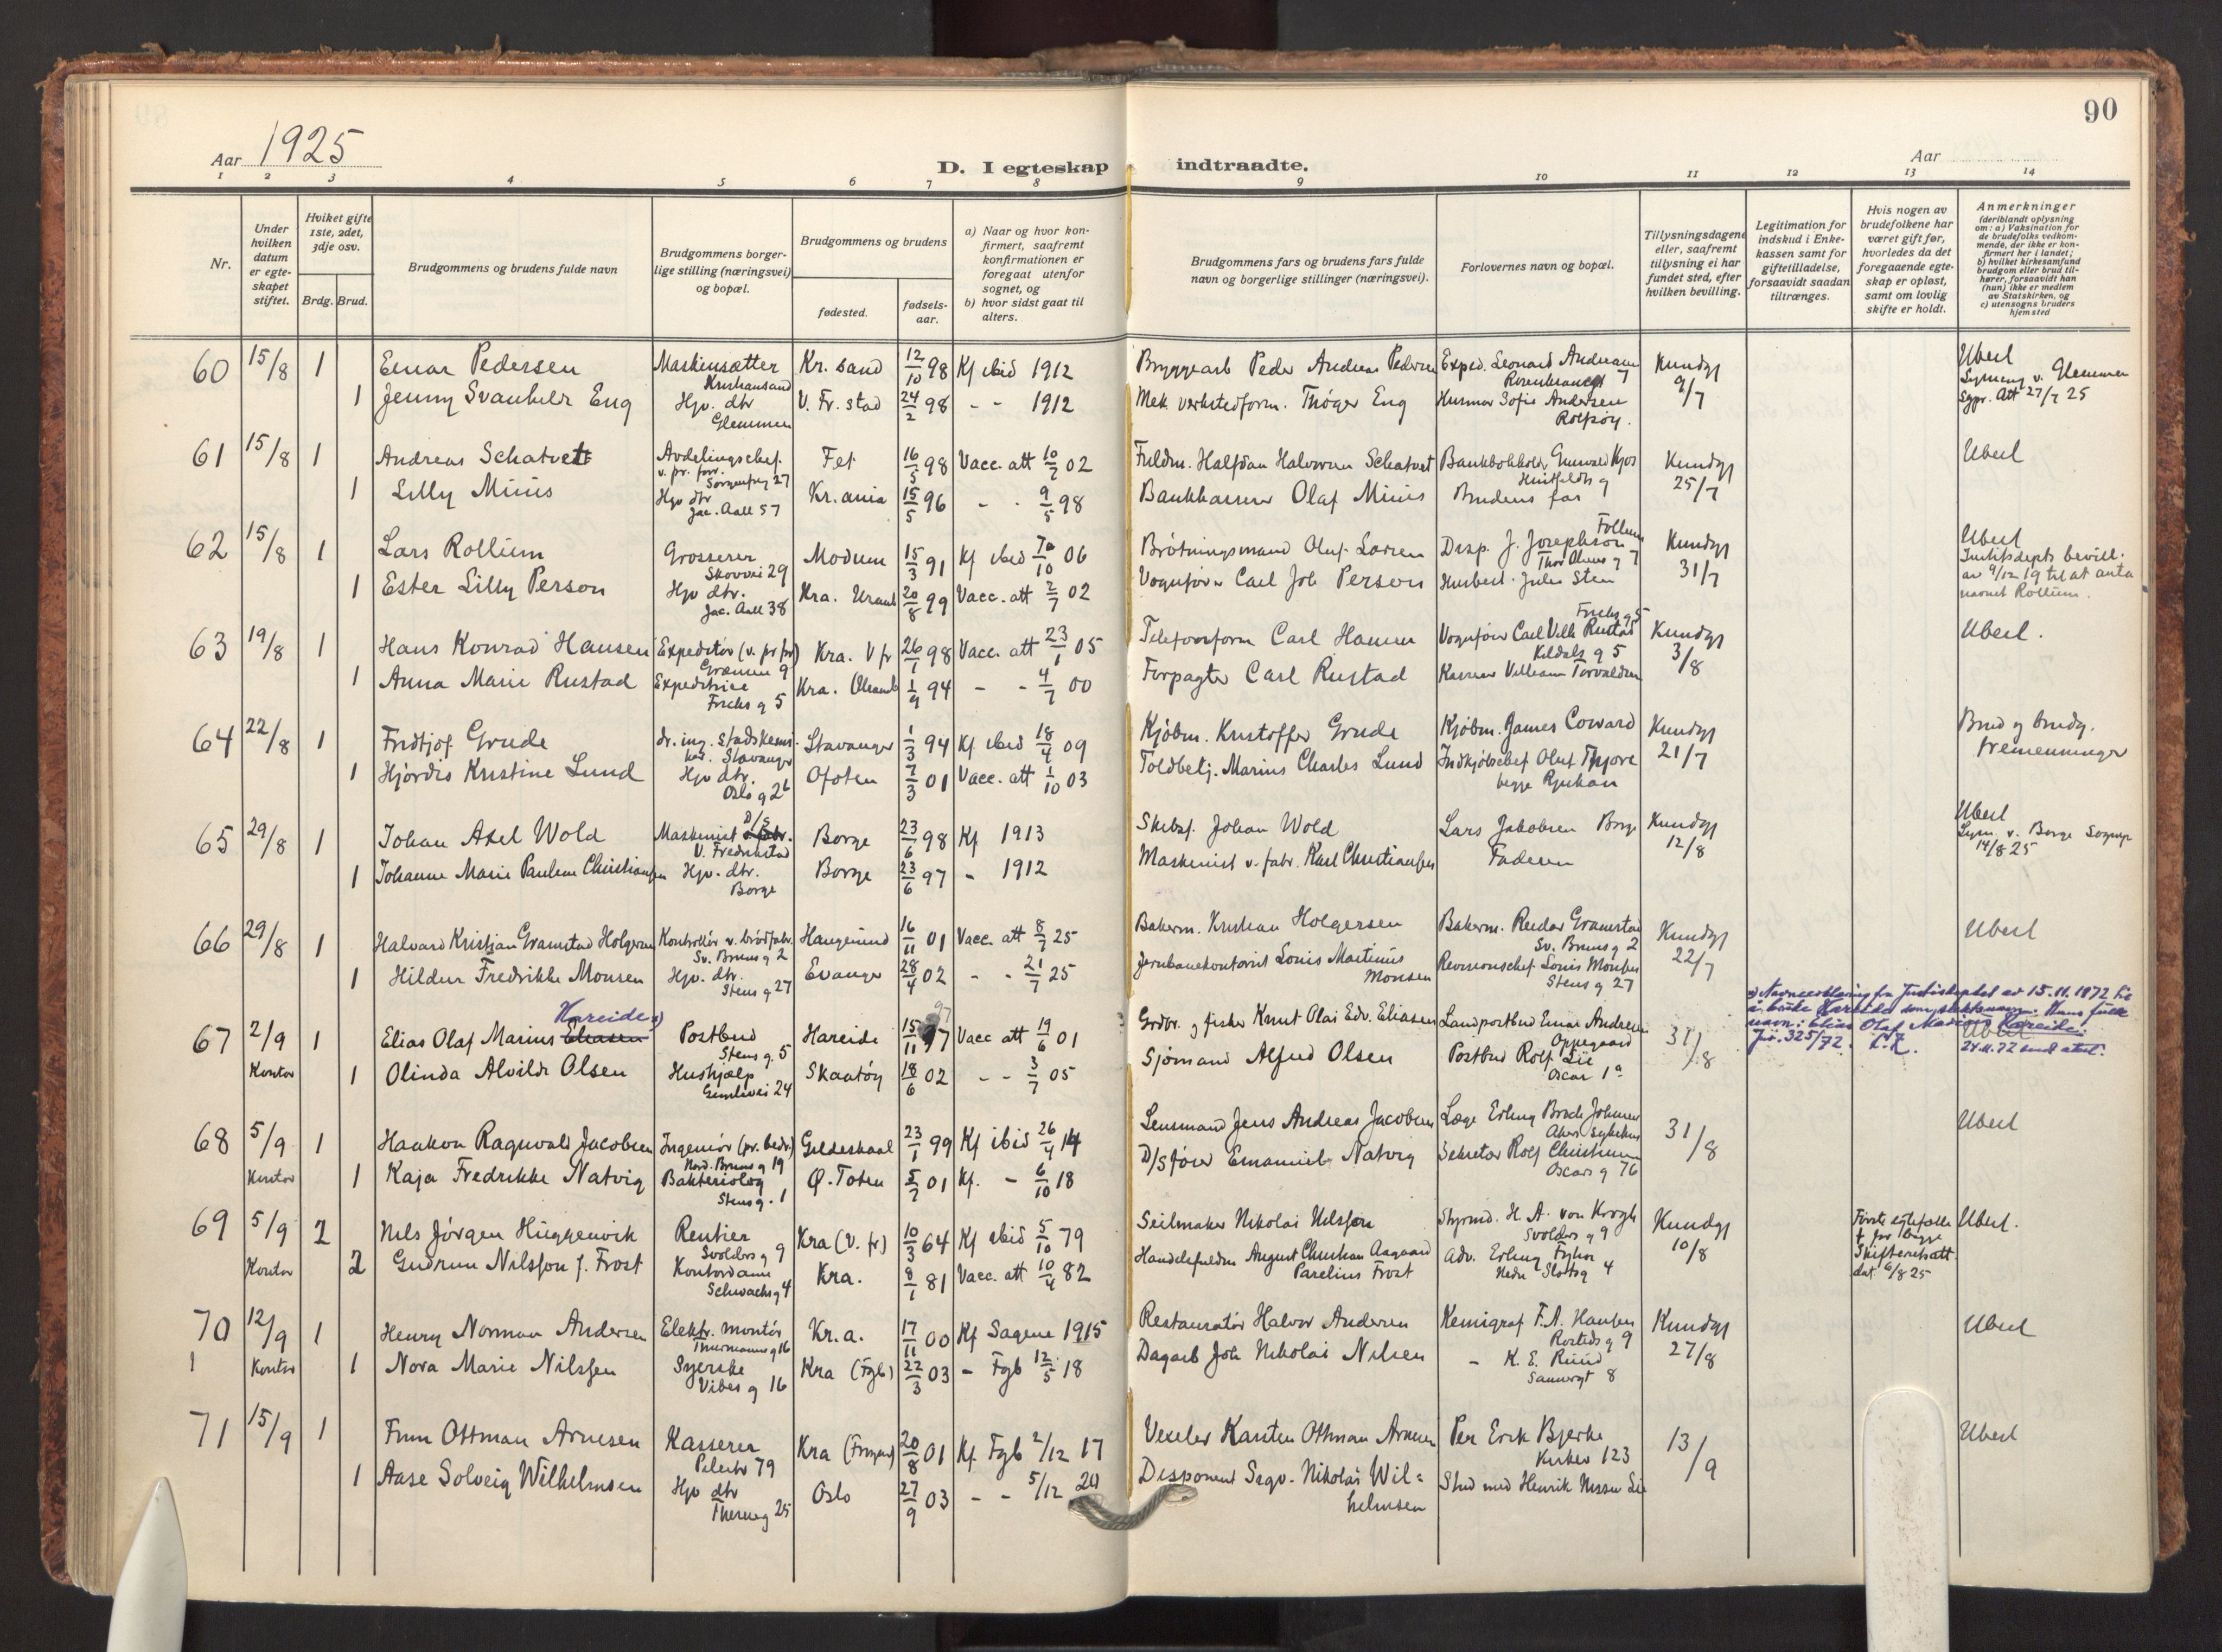 90
Aar 1925
D. I egteskap indtraadte.
Aar
1 2 3 4 5 6 7 8 9 10 11 12 13 14
Nr.
Under hvilken datum er egteskapet stiftet.
Hvilket gifte 1ste, 2det, 3dje osv.
Brdg. Brud.
Brudgommens og brudens fulde navn
Brudgommens borgerlige stilling (næringsvei) og bopæl.
Brudgommens og brudens
fødested.
fødselsaar.
a) Naar og hvor konfirmert, saafremt konfirmationen er foregaat utenfor sognet, og
b) hvor sidst gaat til alters.
Brudgommens fars og brudens fars fulde navn og borgerlige stillinger (næringsvei).
Forlovernes navn og bopæl.
Tillysningsdagene eller, saafremt tillysning ei har fundet sted, efter hvilken bevilling.
Legitimation for indskud i Enkekassen samt for giftetilladelse, forsaavidt saadan tiltrænges.
Hvis nogen av brudefolkene har været gift før, hvorledes da det foregaaende egteskap er opløst, samt om lovlig skifte er holdt.
Anmerkninger
(deriblandt oplysning om: a) Vaksination for de brudefolks vedkommende, der ikke er konfirmert her i landet; b) hvilket kirkesamfund brudgom eller brud tilhører, forsaavidt han (hun) ikke er medlem av Statskirken, og c) utensogns bruders hjemsted
60 15/8 1 Einar Pedersen Maskinsætter Kristiansand Kr. sand 12/10 98 Kf ibid 1912 Bryggearb Peder Andreas Pedersen Exped. Leonard Andreasen 7 Kundgj 9/7 Ubesl
1 Jenny Svanhild Eng Hjv. dtr Glemmen V. Fr. stad 24/2 98 - - 1912 Mek. verkstedform. Thøger Eng Husmor Sofie Andersen Rolfsøy. Sgpr. Att 27/7 25
61 15/8 1 Andreas Schatvet Avdelingschef v. pr. forr. Sorgenfrig 27 Fet 16/5 98 Vacc. att 10/7 02 Fuldm. Halfdan Halvorsen Schatvet Bankbokhold. Gunvald Kjos Huitfeldts g Kundgj 25/7 Ubesl
1 Lilly Minis Hjv dtr Jac. Aall 57 Kr.ania 15/5 96 - - 9/5 98 Bankkasserer Olaf Minis Brudens far
62 15/8 1 Lars Rollum Grosserer Skovvei 29 Modum 15/3 91 Kf ibid 10/10 06 Brøtningsmand Oluf Larsen Disp. J. Josephson Thor Olsens g 7 Kundgj 31/7 Ubesl
1 Ester Lilly Person Hjv dtr. Jac. Aall 38 Kra. Uranb 20/8 99 Vacc. att 2/7 02 Vognfører Carl Joh Person Husbest. Jules Sten Justitsdepts bevill. av 9/12 19 til at anta navnet Rollum.
63 19/8 1 Hans Konrad Hansen Expeditør (v. pr fr) Grønnen 9 Kra. V fr 26/1 98 Vacc. att 23/1 05 Telefonform Carl Hansen Vognfører Carl Vilh Rustad Frichs g 5 Kundgj 3/8 Ubesl.
1 Anna Marie Rustad Expeditrice Frichs g 5 Kra. Uranb 1/9 94 - - 4/7 00 Forpagter Carl Rustad Kasserer William Torvaldsen
64 22/8 1 Fridtjof Grude dr. ing. Stadskemiker Stavanger Stavanger 1/3 94 Kf ibid 18/4 09 Kjøbm. Kristoffer Grude Kjøbm. James Coward Kundgj 21/7 Brud og brudg. tremenninger
1 Hjørdis Kristine Lund Hjv dtr. Oslo g 26 Ofoten 7/3 01 Vacc. att 1/10 03 Toldbetj. Marius Charles Lund Indkjøbschef Oluf Thjore begge Rjukan
65 29/8 1 Johan Axel Wold Maskinist D/S V. Fredrikstad Borge 23/6 98 Kf 1913 Skibsf. Johan Wold Lars Jakobsen Borge Kundgj 12/8 Ubesl
1 Johanne Marie Pauline Christiansen Hjv. dtr. Borge Borge 23/6 97 - 1912 Maskinist v. fabr. Karl Christiansen Faderen Lysn. v. Borge Sognepr 14/8 25
66 29/8 1 Halvard Kristian Granstad Holgersen Kontrollør v. brødfabr. Sv. Bruns g 2 Haugesund 16/11 01 Vacc. att 8/7 25 Bakerm. Kristian Holgersen Bakerm. Reidar Granstad Sv. Bruns g 2 Kundgj 22/7 Ubesl
1 Hildur Fredrikke Monsen Hjv. dtr. Stens g 27 Evanger 28/4 02 - - 21/7 25 Jernbanekontorist Louis Martinius Monsen Revisionschef Louis Monsen Stens g 27
67 2/9 Kontor 1 Elias Olaf Marius Eliasen Hareide x) Postbud Stens g. 5 Hareide 15/11 97 Vacc att 19/6 01 Grdbr. og fisker Knut Olai Edv. Eliasen Landpostbud Einar Andresen Oppegaard 31/8 Ubesl
1 Olinda Alvilde Olsen Hushjælp 24 Skaatøy 18/6 02 - - 3/7 05 Sjømand Alfred Olsen Postbud Rolf Lie Oscar 1a
x) Navneerklæring fra Justisdeptet av 15.11.1972 Hans fulle navn: Elias Olaf Marius Hareide. Jnr. 325/72. 24.11.72 sendt
68 5/9 Kontor 1 Haakon Ragnvald Jacobsen Ingeniør (pr. bedr.) Nord. Bruns g 19 Gildeskaal 23/1 99 Kf ibid 26/4 14 Lensmand Jens Andreas Jacobsen Læge Erling Brodie Johnsen Aker Sykehus 31/8 Ubesl
1 Kaja Fredrikke Natvig Bakteriolog Stens g. 1 Ø. Toten 5/7 01 Kf. - 6/10 18 D/S fører Emanuel Natvig Sekretær Rolf Christensen Oscars g 76
69 5/9 Kontor 2 Nils Jørgen Huggenvik Rentier Svolders g 9 Kra (V. fr) 10/3 64 Kf ibid 5/10 79 Seilmaker Nikolai Nilssen Styrmd. H. A. von Krogh Svolders g 9 Kundgj 10/8 Første egtefælle † for begge Skifterettsatt. dat. 6/8 25 Ubesl.
2 Gudrun Nilsson f. Frost Kontordame Schwachs g 4 Kra. 8/1 81 Vacc. att 10/4 82 Handelsfuldm August Christian Aagaard Parelius Frost Adv. Erling Nedre Slotsg 4
70 12/9 Kontor 1 Henry Norman Andersen Elektr. montør Thurmanns g 16 Kr.a. 17/11 00 Kf Sagene 1915 Restauratør Halvor Andersen Kemigraf F.A. Hansen Rosteds g 9 Kundgj 27/8 Ubesl
1 Nora Marie Nilssen Syerske Vibes g 16 Kra (Fgb) 22/3 03 - Fgb 12/5 18 Dagarb Joh Nikolai Nilsen - K. E. Ruud Sannergt 8
71 15/9 1 Finn Ottman Arnesen Kasserer Pilestr 79 Kra 20/8 01 Kf Fgb 2/12 17 Vexeler Karsten Othman Arnesen Per Erik Bjerke Kirkev 123 13/9 Ubesl
1 Aase Solveig Wilhelmsen Hjv dtr Thereseg 25 Oslo 27/9 03 - - 5/12 20 Disponent Sigv. Nikolai Wilhelmsen Stud med Henrik Nissen Lie